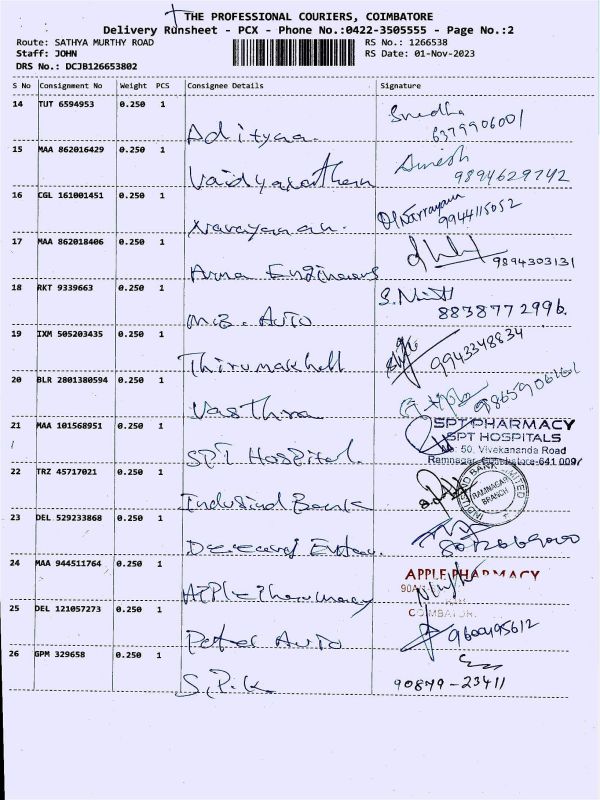 THE PROFESSIONAL COURIERS, COIMBATORE
Delivery Runsheet - PCX - Phone No.:0422-3505555 - Page No.:2
Route: SATHYA MURTHY ROAD RS No.: 1266538
Staff: JOHN RS Date: 01-Nov-2023
DRS No.: DCJB126653802
S No Consignment No Weight PCS Consignee Details Signature
14 TUT 6594953 0.250 1 Adityaa. 6379906001
15 MAA 862016429 0.250 1 9894629742
16 CGL 161001451 0.250 1 9944115052
17 MAA 862018406 0.250 1 Arma Engineers 9894303131
18 RKT 9339663 0.250 1 M.B. Auto 8838772996.
19 IXM 505203435 0.250 1 9943348834
20 BLR 2801380594 0.250 1 Vasthra
21 MAA 101568951 0.250 1 SPT Hospital.
SPT PHARMACY
SPT HOSPITALS
No: 50, Vivekananda Road
Ramnagar, Coimbatore-641 009
22 TRZ 45717021 0.250 1 Indusind Bank
INDUSIND BANK LIMITED
RAMNAGAR
BRANCH
23 DEL 529233868 0.250 1
24 MAA 944511764 0.250 1 Apple Pharmacy
APPLE PHARMACY
COIMBATORE
25 DEL 121057273 0.250 1 Peter Auto 9600495612
26 GPM 329658 0.250 1 S.P.K 90879-23411